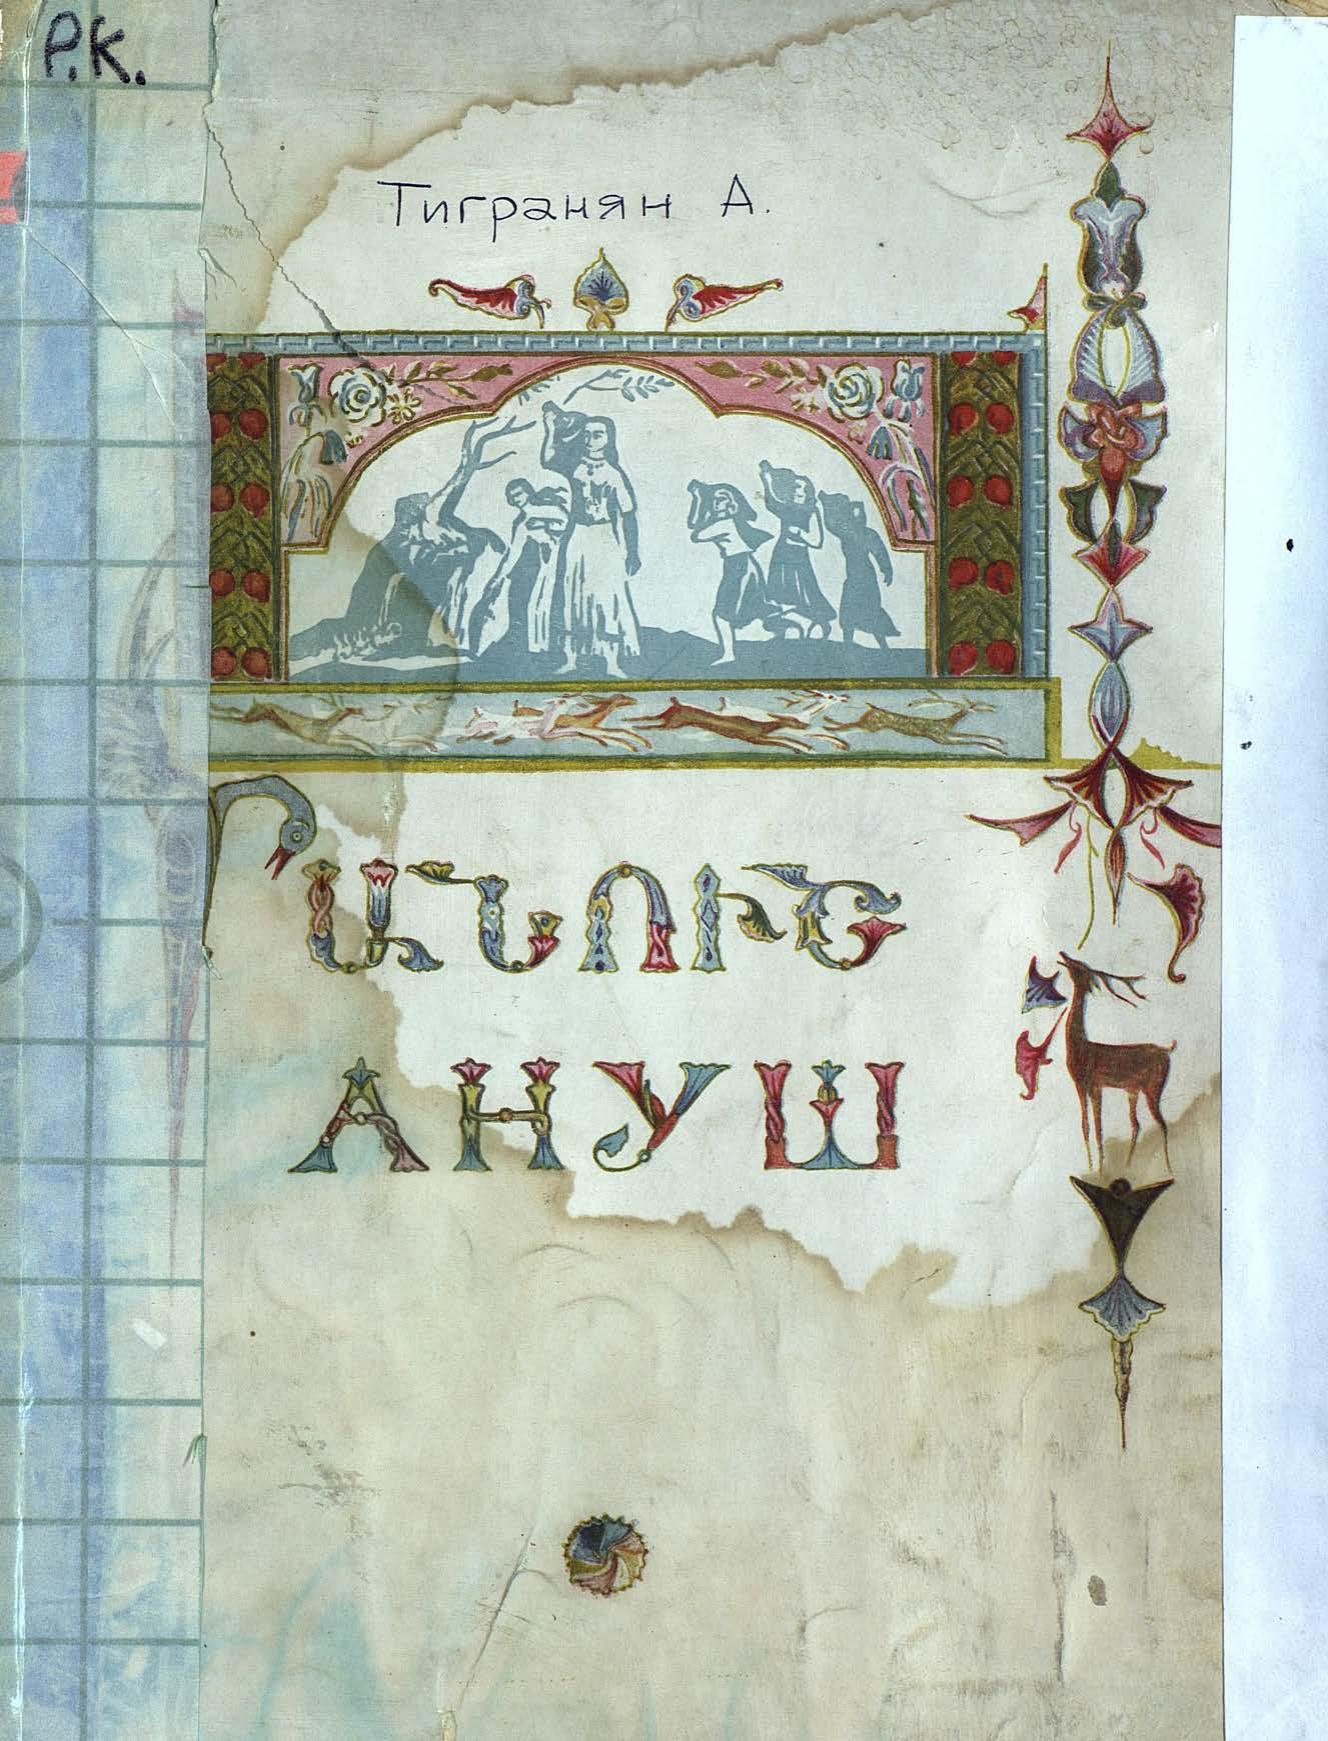 Р.К.
Тигранян А.
ԱՆՈՒՇ
АНУШ